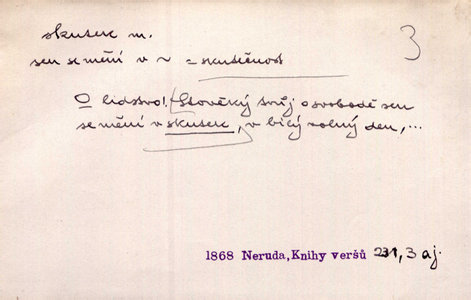 skutek m.
3
sen se mění v ~ = skutečnost
O lidstvo! Stověký tvůj o svobodě sen
se mění v skutek, v bílý volný den, ...
1868 Neruda, Knihy veršů 231, 3 aj.